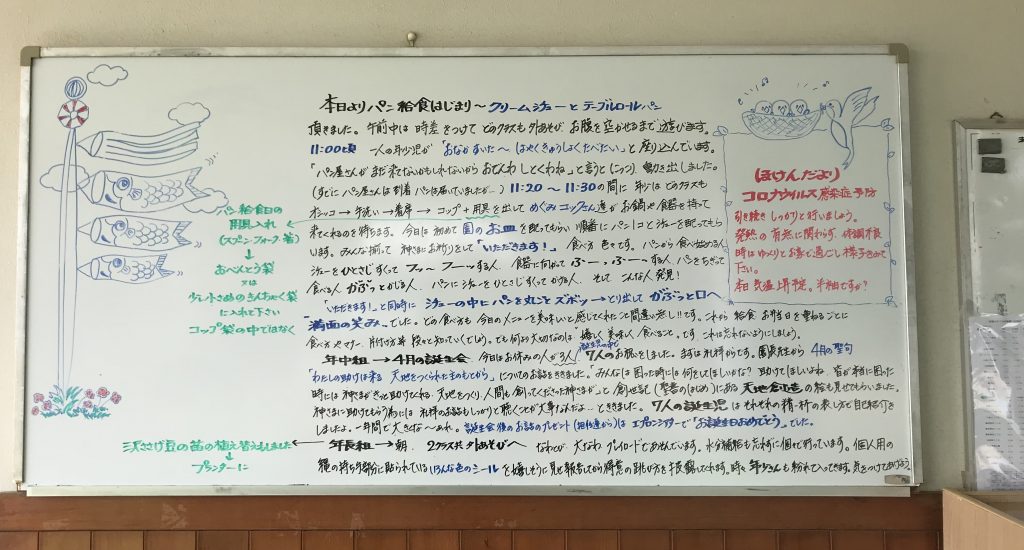 本日よりパン給食はじまり〜クリームシチューとテーブルロールパン
頂きました。午前中は時差をつけてどのクラスも外あそび お腹を空かせるまで遊びます。
11:00頃 一人の年少児が「おなかすいた〜はやくきゅうしょくたべたい」と座り込んでいます。
「パン屋さんがまだ来てないかもしれないからおでんわしとくわね」と言うとにっこり動き出しました。
(すでにパン屋さんは到着 パンは届いていましたが…) 11:20〜11:30の間に年少はどのクラスも
オシッコ→手洗い→着席→コップ+用具を出してめぐみコックさん達がお鍋や食器を持って
来てくれるのを待ちます。今日は初めて園のお皿を配ってもらい順番にパン1コとシチューを配ってもら
います。みんな揃って神さまにお祈りをして「いただきます!」食べ方色々です。パンから食べ始める人
シチューをひとさじすくってフッ〜フーッする人、食器に向かってふーっ、ふーっする人、パンをちぎって
食べる人 ガブっとかじる人、パンにシチューをひとさじすくってかける人、そしてこんな人発見!
「いただきます!」と同時にシチューの中にパンを丸ごとズボッ→とり出してがぶっと口へ
満面の笑み でした。どの食べ方も今日のメニューを美味しいと感じてくれたこと間違い無し!!です。これから給食 お弁当を重ねるごとに
食べ方やマナー、片付け方等 段々と知っていくでしょう。でも何より大切なのは嬉しく美味しく食べること。です。これは忘れないようにしましょう。
年中組→4月の誕生会 今日はお休みの人が3人 誕生児の中で 7人のお祝をしました。まずは礼拝からです。園長先生から4月の聖句
「わたしの助けは来る 天地をつくられた主のもとから」についてのお話をききました。みんなは困った時には何をしてほしいかな?助けてほしいよね 皆が本当に困った
時には神さまがきっと助けてくれる。天地をつくり人間も創ってくださった神さまが」と創世記(聖書のはじめ)にある天地創造の絵も見せてもらいました。
神さまに助けてもらう為には礼拝のお話もしっかりと聴くことが大事なんだなよ…とききました。7人の誕生児はそれぞれの精一杯の表し方で自己紹介を
しましたよ。一年間で大きくな〜あれ。誕生会後のお話のプレゼント(担任達から)はエプロンシアターで"お誕生日おめでとう"でした。
年長組→朝、2クラス共外あそびへ なわとび、大なわ、グレイロードであそんでいます。水分補給も忘れずに個々で行っています。個人用の
縄の持ち手部分に貼られているいろんな色のシールを嬉しそうに見せ報告しながら得意の跳び方を披露してくれます。時々年少さんも紛れて入ってきます。気をつけてあげよう。
パン給食日の
用具入れ
(スプーン・フォーク・箸)
↓
おべんとう袋
又は
少し小さめのきんちゃく袋
に入れて下さい
コップ袋の中ではなく
三沢ささげ豆の苗の植え替えしました
↓
プランターに
(ほけんだより)
コロナウイルス感染症予防
引き続きしっかりと行いましょう。
発熱の有無に関わらず、体調不良
時はゆっくりとお家で過ごし様子をみて
下さい。
本日気温上昇予定。半袖ですか?